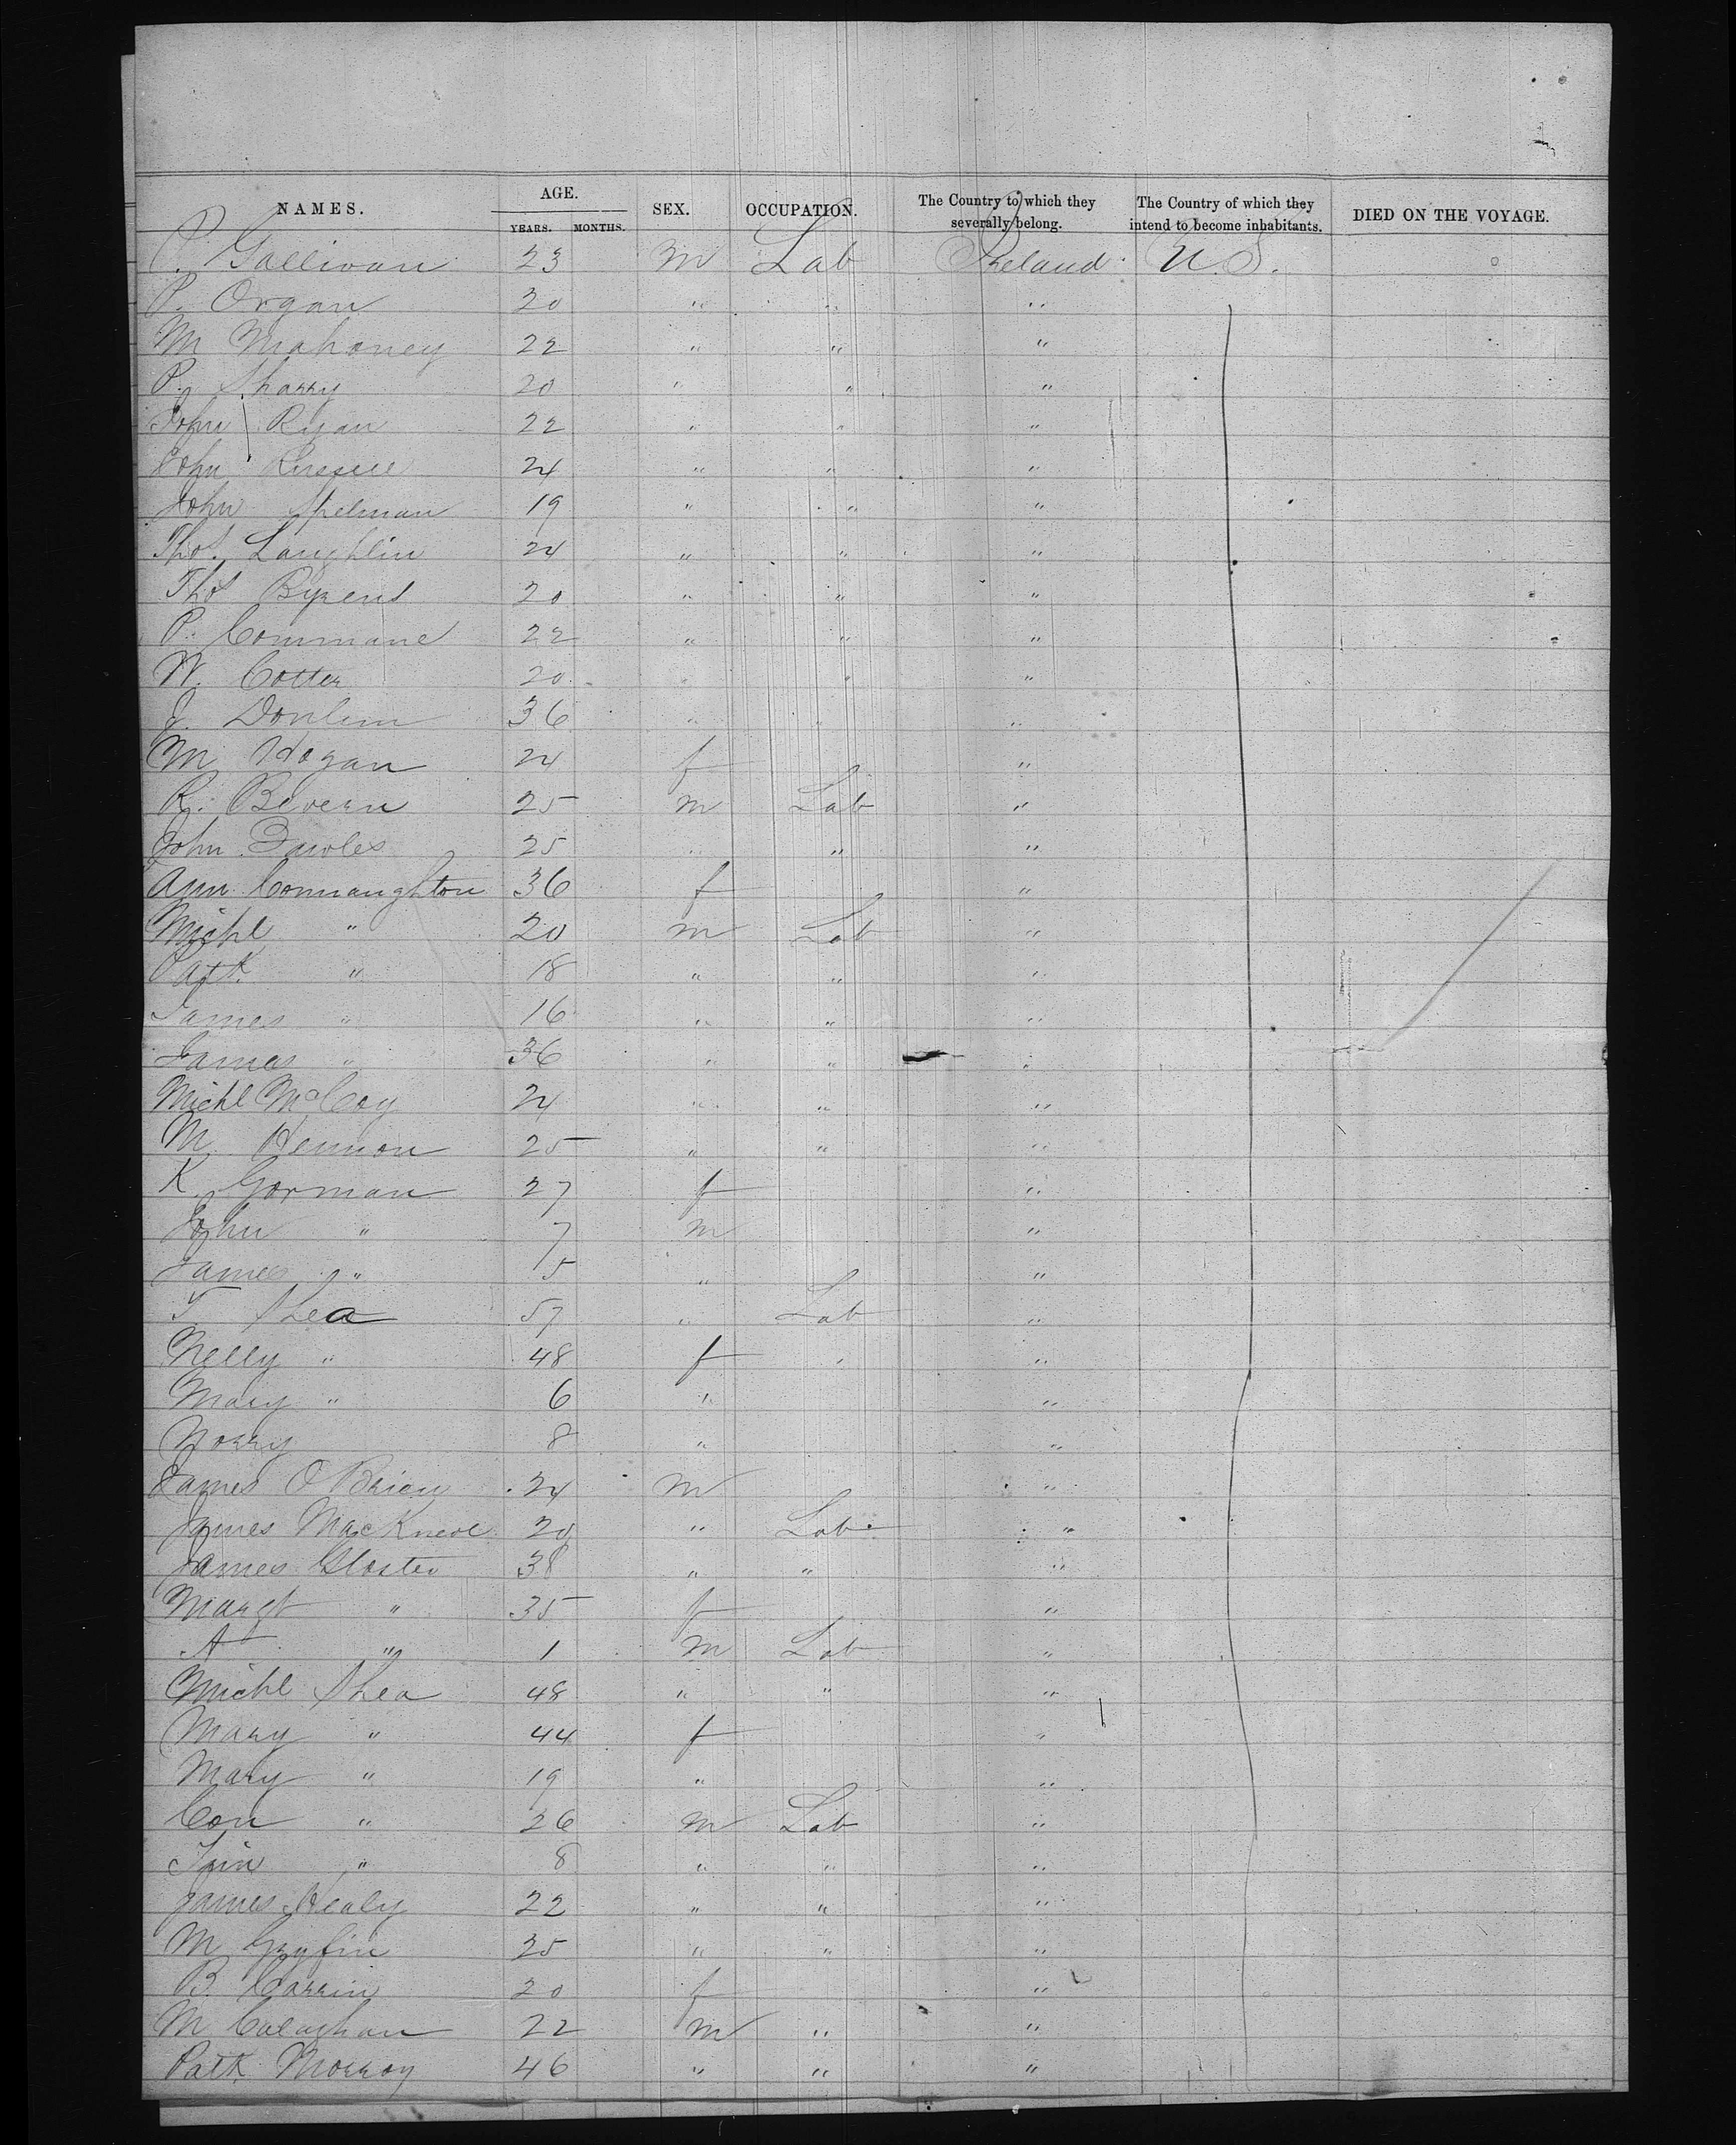 NAMES. AGE. SEX. OCCUPATION. The Country to which they severally belong. The Country of which they intend to become inhabitants. DIED ON THE VOYAGE.
YEARS. MONTHS.
P. Gallivan 23 m Lab Ireland U.S.
P. Organ 20 " " "
M Mahoney 22 " " "
P. Sharry 20 " " "
John Ryan 22 " " "
John Russell 24 " " "
John Spelman 19 " " "
Thos. Laughlin 24 " " "
Thos Byrens 20 " " "
P. Commane 22 " " "
W. Cotter 20 " " "
J. Donlin 36 " " "
M Hogan 24 f "
R. Bevern 25 m Lab "
John Fawles 25 " " "
Ann Connaughton 36 f "
Michl " 20 m Lab "
Patk " 18 " " "
James " 16 " " "
James " 36 " " "
Michl McCoy 24 " " "
M. Hennon 25 " " "
K. Gorman 27 f "
John " 7 m "
James " 5 " "
T Shea 57 " Lab "
Nelly " 48 f " "
Mary " 6 " "
Norry 8 " "
James O Brien 24 m "
James 20 " Lab "
James Gloster 38 " " "
Margt " 35 f "
A " 1 m Lab "
Michl Shea 48 " " "
Mary " 44 f "
Mary " 19 " "
Con " 26 m Lab "
Tim " 8 " " "
James Healy 22 " " "
M Gryfin 25 " " "
B. Carrin 20 f "
M Calaghan 22 m " "
Patk Morroy 46 " " "